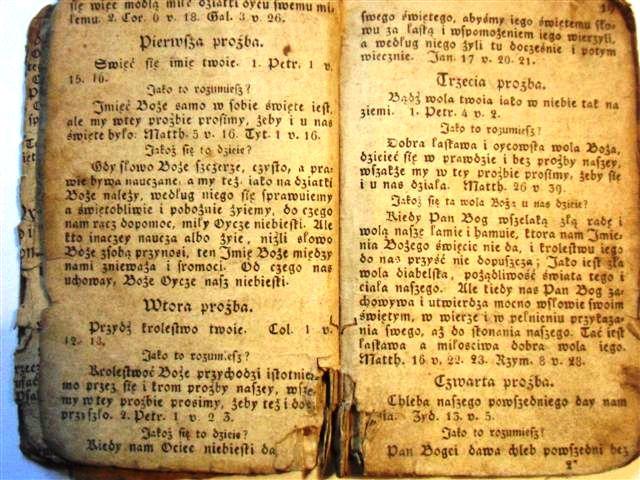 się więc modlą mile dziatki oycu swemu mi-
lemu. 2. Cor. 6 v. 18. Gal. 3 v. 26.
Pierwsza proźba.
Swięć się imię twoie. 1. Petr. 1 v.
15. 16.
Jako to rozumiesz?
Jmięć Boże samo w sobie święte iest,
ale my wtey proźbie prosimy, żeby i u nas
święte było: Matth. 5 v. 16. Tyt. 1 v. 16.
Jakoż się to dzieie?
Gdy słowo Boże szczerze, czysto, a pra-
wie bywa nauczane, a my też, iako na dziatki
Boże należy, według niego się sprawuiemy
a świętobliwie i pobożnie żyiemy, do czego
nam rącz dopomoc, miły Oycze niebieski. Ale
kto inaczey naucza albo żyie, niżli słowo
Boże zsobą przynosi, ten Jmię Boże między
nami znieważa i sromoci. Od czego nas
uchoway, Boże Oycze nasz niebieski.
Wtora proźba.
Przydź krolestwo twoie. Col. 1 v.
12. 13.
Jako to rozumiesz?
Krolestwoć Boże przychodzi istotnie
mo przez się i krom proźby naszey, wsze
my wtey proźbie prosimy, żeby też i do
przyszło. 2. Petr. 1 v. 2 3.
Jakoż się to dzieie?
Kiedy nam Ociec niebieski da
swego świętego, abyśmy iego świętemu sło-
wu za łaską i wspomożeniem iego wierzyli,
a według niego żyli tu docześnie i potym
wiecznie. Jan. 17 v. 20. 21.
Trzecia proźba.
Bądź wola twoia iako w niebie tak na
ziemi. 1. Petr. 4 v. 2.
Jako to rozumiesz?
Dobra łaskawa i oycowska wola Boża,
dzieieć się w prawdzie i bez proźby naszey,
wszakże my w tey proźbie prosimy, żeby się
i u nas działa. Matth. 26 v 39.
Jakoż się ta wola Bożą u nas dzieie?
Kiedy Pan Bog wszelaką złą radę i
wolą nasze łamie i hamuie, ktora nam Jmie-
nia Bożego święcic nie da, i krolestwu iego
do nas przyść nie dopuszcza; Jako iest zła
wola diabelska, pożądliwość świata tego i
ciała naszego. Ale kiedy nas Pan Bog za-
chowywa i utwierdza mocno wsłowie swoim
świętym, w wierze i w pełnieniu przykaza-
nia swego, aż do skonania naszego. Tać iest
łaskawa a miłosciwa dobra wola iego.
Matth. 16 v. 22. 23. Rzym. 8 v. 28.
Czwarta proźba.
Chleba naszego powszedniego day nam
Zyd. 13. v. 5.
Jako to rozumiesz?
Pan Bogci dawa chleb powszedni bez
2